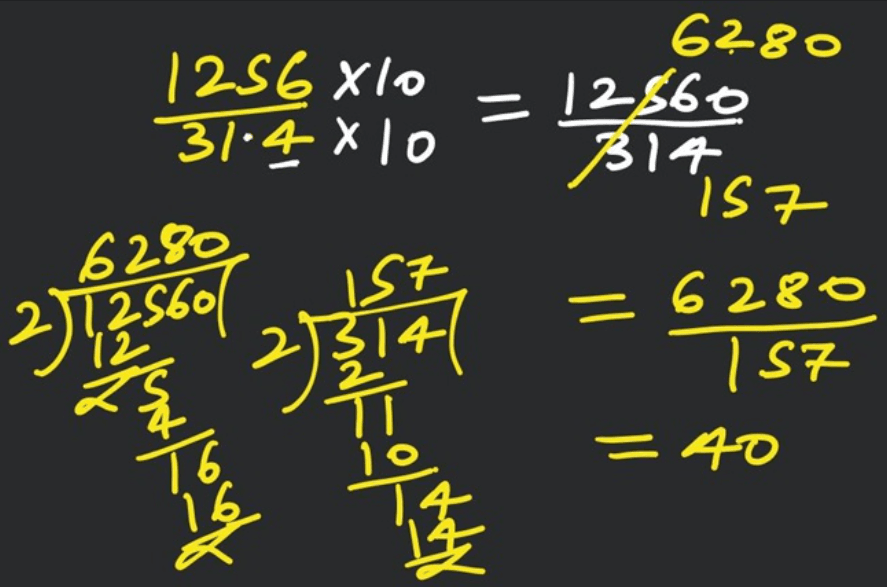 6280
1256 ×10 = 12560
31.4 ×10 314
157
6280
2)12560(
12
5
4
16
16
157
2)314(
2
11
10
14
14
= 6280
157
= 40